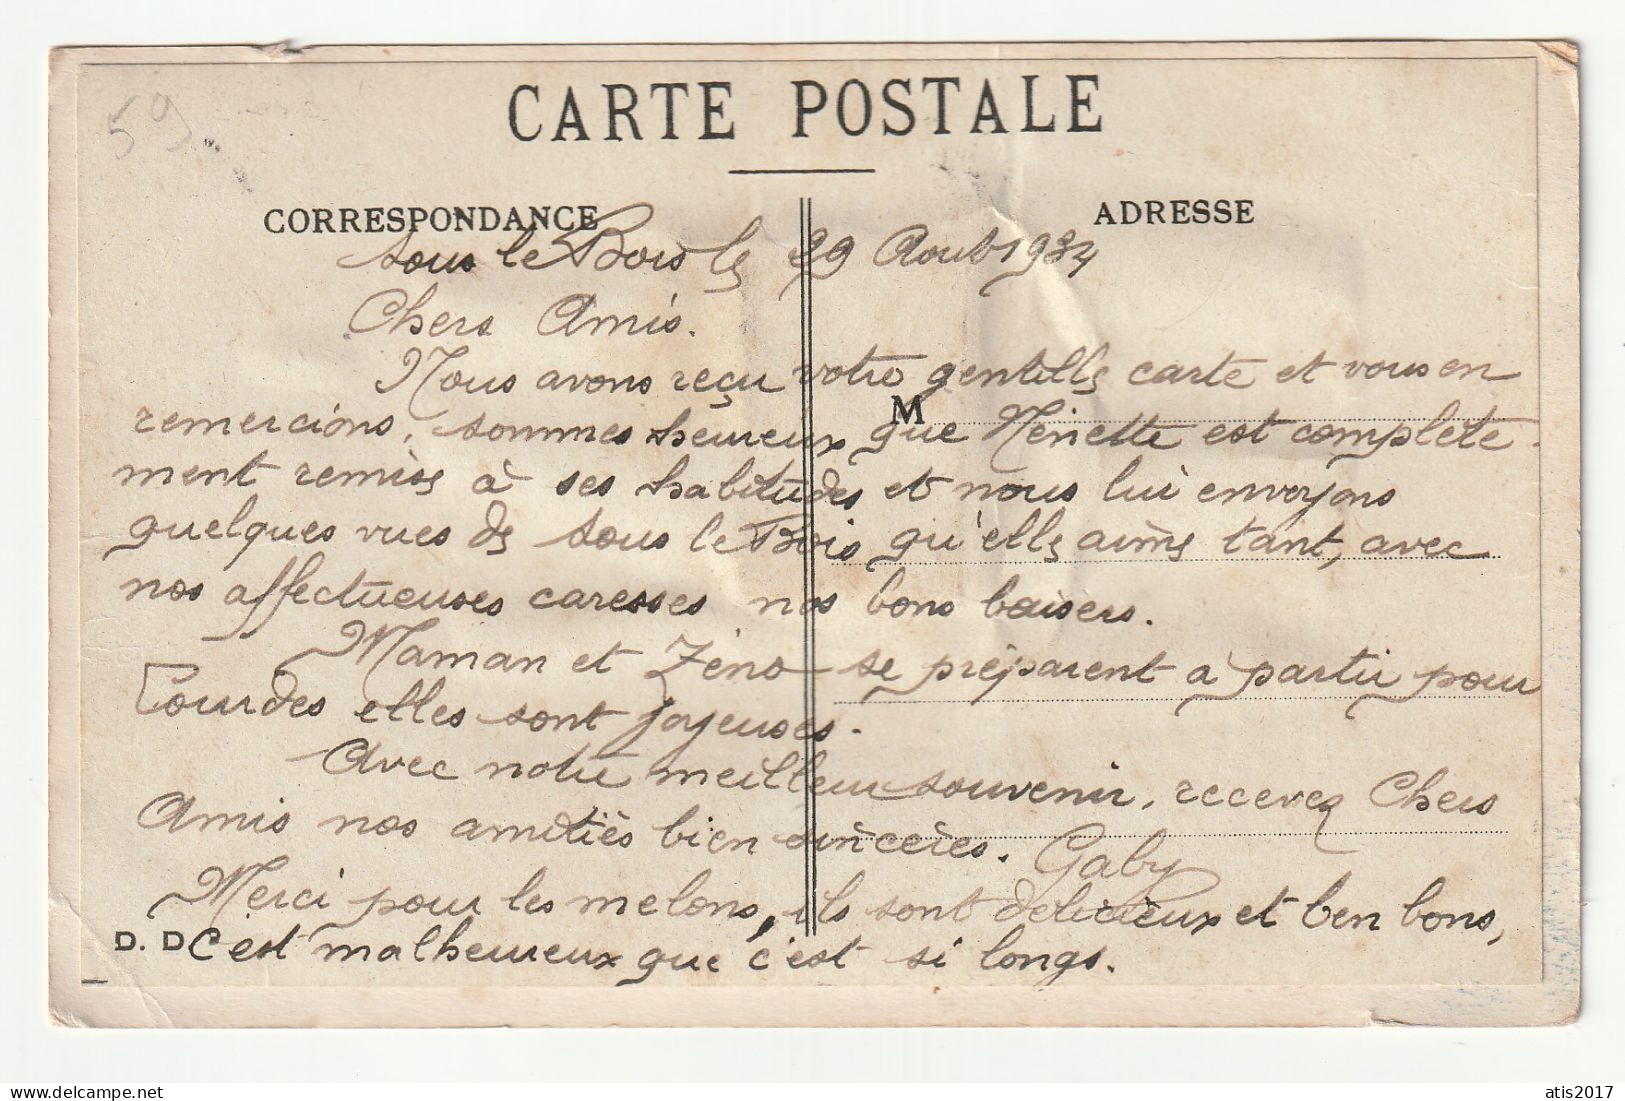 59
CARTE POSTALE
CORRESPONDANCE
ADRESSE
Sous le Bois le 29 Aout 1934
Chers Amis.
Nous avons reçu votre gentille carte et vous en
M
remercions, sommes heureux que Nénette est complète
ment remise à ses habitudes et nous lui envoyons
quelques vues de Sous le Bois qu'elle aime tant, avec
nos affectueuses caresses nos bons baisers.
Maman et Zéno se préparent à partir pour
Lourdes elles sont joyeuses.
Avec notre meilleur souvenir, recevez Chers
Amis nos amitiés bien sincères. Gaby
Merci pour les melons, ils sont délicieux et ben bons,
D. D
C'est malheureux que c'est si longs.
delcampe.net
atis2017